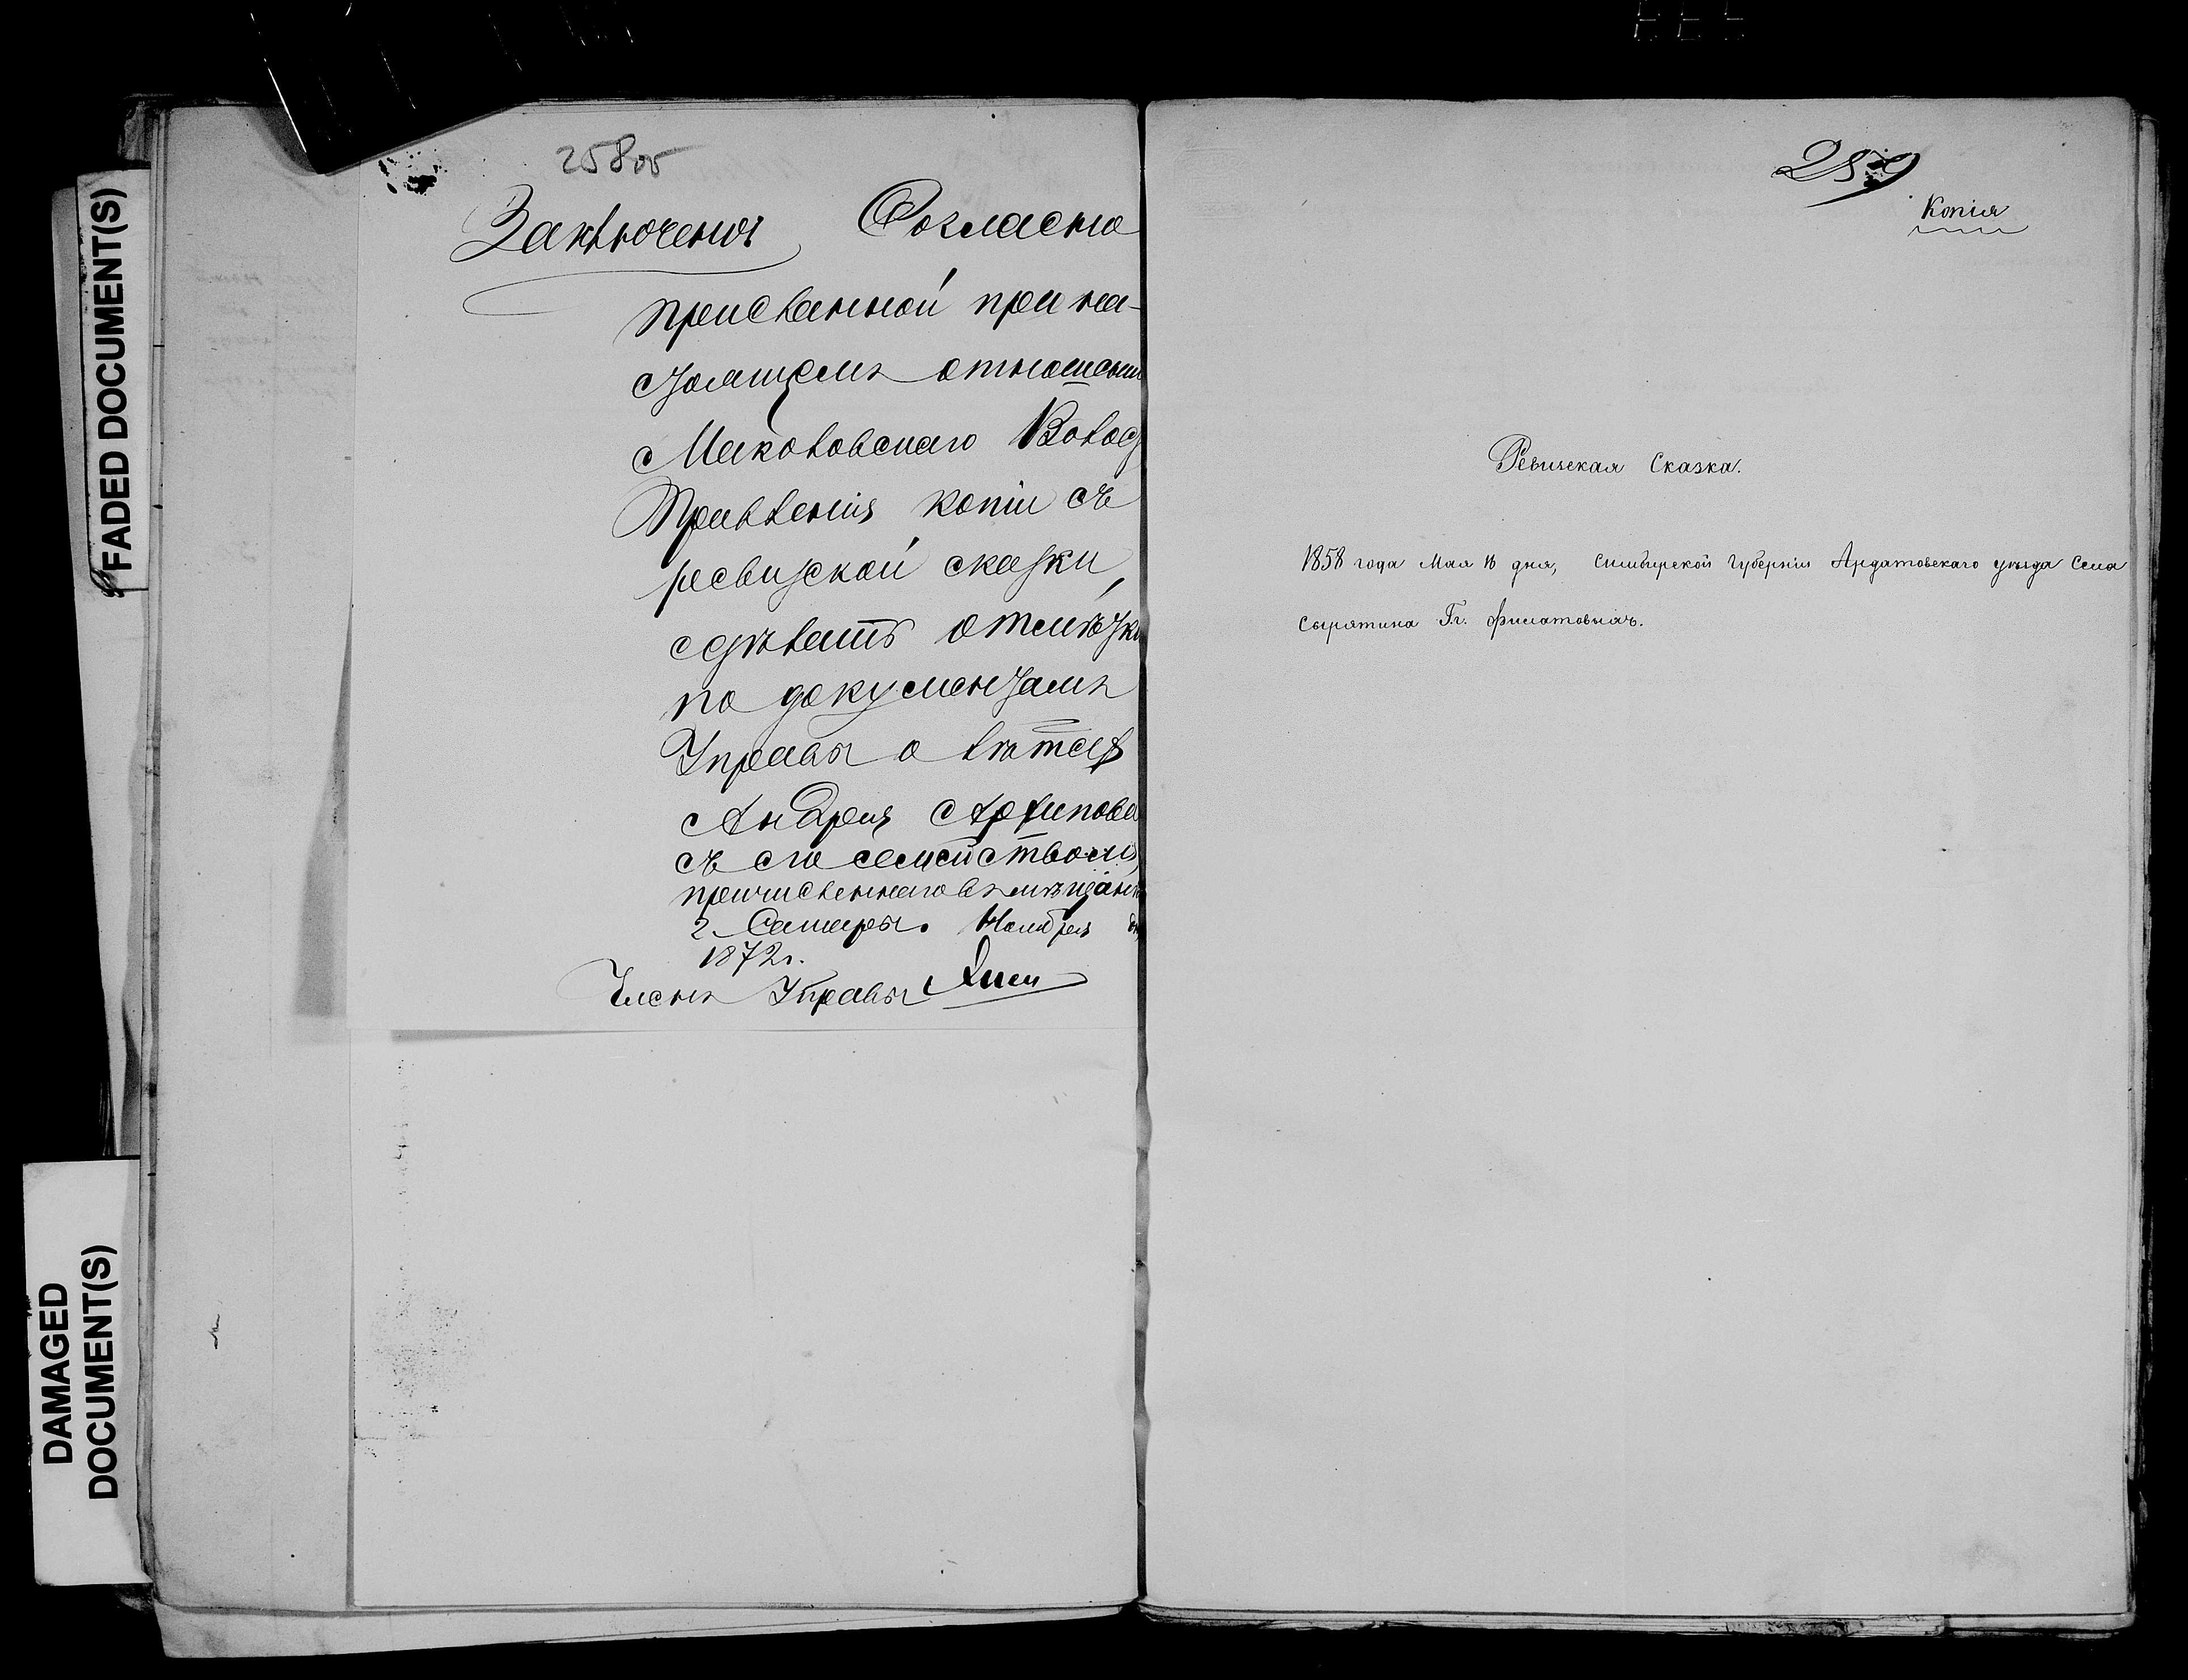 FADED DOCUMENT(S)
DAMAGED
DOCUMENT(S)
258об
Заключеніе Согласно
присланной при на-
стоящемъ отношеніи
Маколовскаго Волос
Правленія копіи съ
ревизской сказки,
сдѣлать отмѣтку
по документамъ
Управы о лѣтахъ
Андрея Архипова
съ его семействомъ,
причисленнаго въ мѣщане
г. Самары. Ноября дн
1872 г.
Членъ Управы
259
Копія
Ревизская Сказка.
1858 года Мая 18 дня, Симбирской Губерніи Ардатовскаго уѣзда Села
Сырятина Гг. Филатовыхъ.